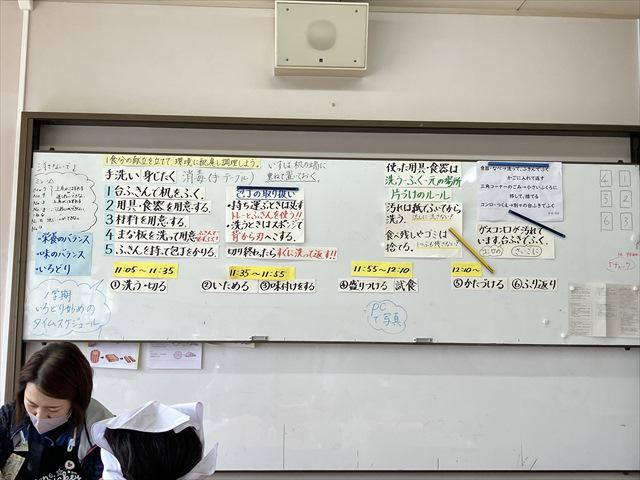 1食分の献立を立てて、環境に配慮し調理しよう。
手洗い 身じたく 消毒(手・テーブル)
いすは机の端に
重ねて置いておく。
1 台ふきんで机をふく。
2 用具・食器を用意する。
3 材料を用意する。
4 まな板を洗って用意
5 ふきんを持って包丁をかりる。
包丁の取り扱い
・持ち運ぶときは必ず
トレーとふきんを使う!!
・洗うときはスポンジで
背から刃へこする。
切り終わったらすぐに洗って返す!!
使った用具・食器は
洗う→ふく→元の場所
片づけのルール
汚れは紙でふいてから
洗う。
食べ残しやゴミは
捨てる。
食器・なべ→洗って、ふきんでふく
かごに入れて返す
三角コーナーのごみ→小さいふくろに
移して、捨てる
コンロ・つくえ→別々の台ふきでふく
ガスコンロが汚れて
います。台ふきでふく。
4 1
5 2
6 3
・栄養のバランス
・味のバランス
・いろどり
11:05〜11:35
11:35〜11:55
11:55〜12:10
12:10〜
①洗う・切る
②いためる
③味付けをする
④盛りつける 試食
⑤かたづける
⑥ふり返り
1学期
いろどり炒めの
タイムスケジュール
PC
で写真